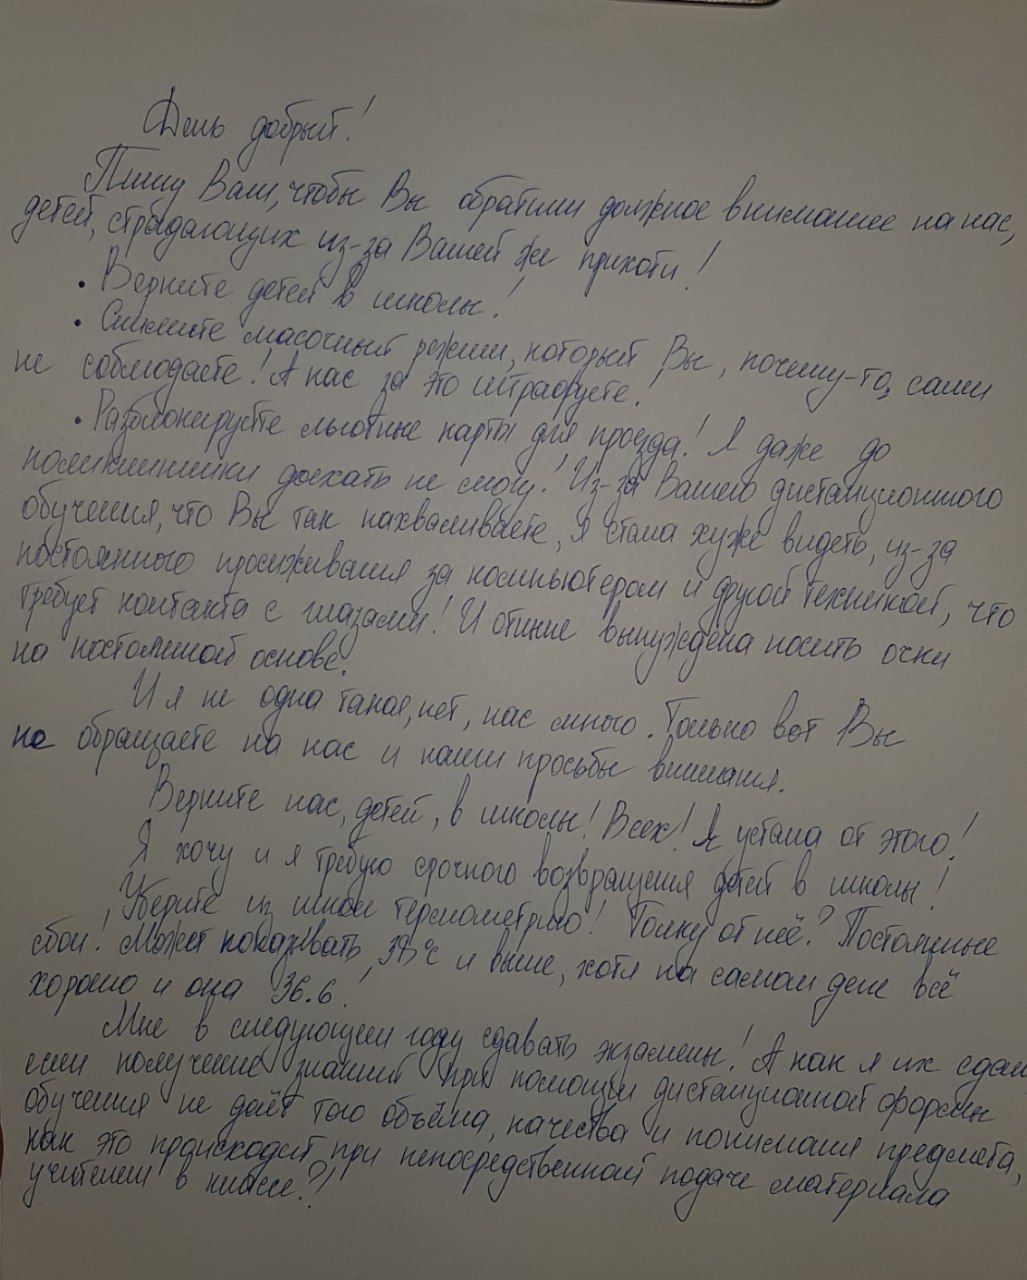 День добрый!
Пишу Вам, чтобы Вы обратили должное внимание на нас,
детей, страдающих из-за Вашей же прихоти!
· Верните детей в школы!
· Снимите масочный режим, который Вы, почему-то, сами
не соблюдаете! А нас за это штрафуете!
· Разблокируйте льготные карты для проезда! Я даже до
поликлиники доехать не могу! Из-за Вашего дистанционного
обучения, что Вы так нахваливаете, я стала хуже видеть, из-за
постоянного просиживания за компьютером и другой техникой, что
требует контакта с глазами! И отныне вынуждена носить очки
на постоянной основе.
И я не одна такая, нет, нас много. Только вот Вы
не обращаете на нас и наши просьбы внимания.
Верните нас, детей, в школы! Всех! Я устала от этого!
Я хочу и я требую срочного возвращения детей в школы!
Уберите из школ термометрию! Толку от неё? Постоянные
сбои! Может показывать 38°C и выше, хотя на самом деле всё
хорошо и она 36.6!
Мне в следующем году сдавать экзамены! А как я их сдам
если получение знаний при помощи дистанционной формы
обучения не даёт того объёма, качества и понимания предмета,
как это происходит при непосредственной подаче материала
учителем в классе?!